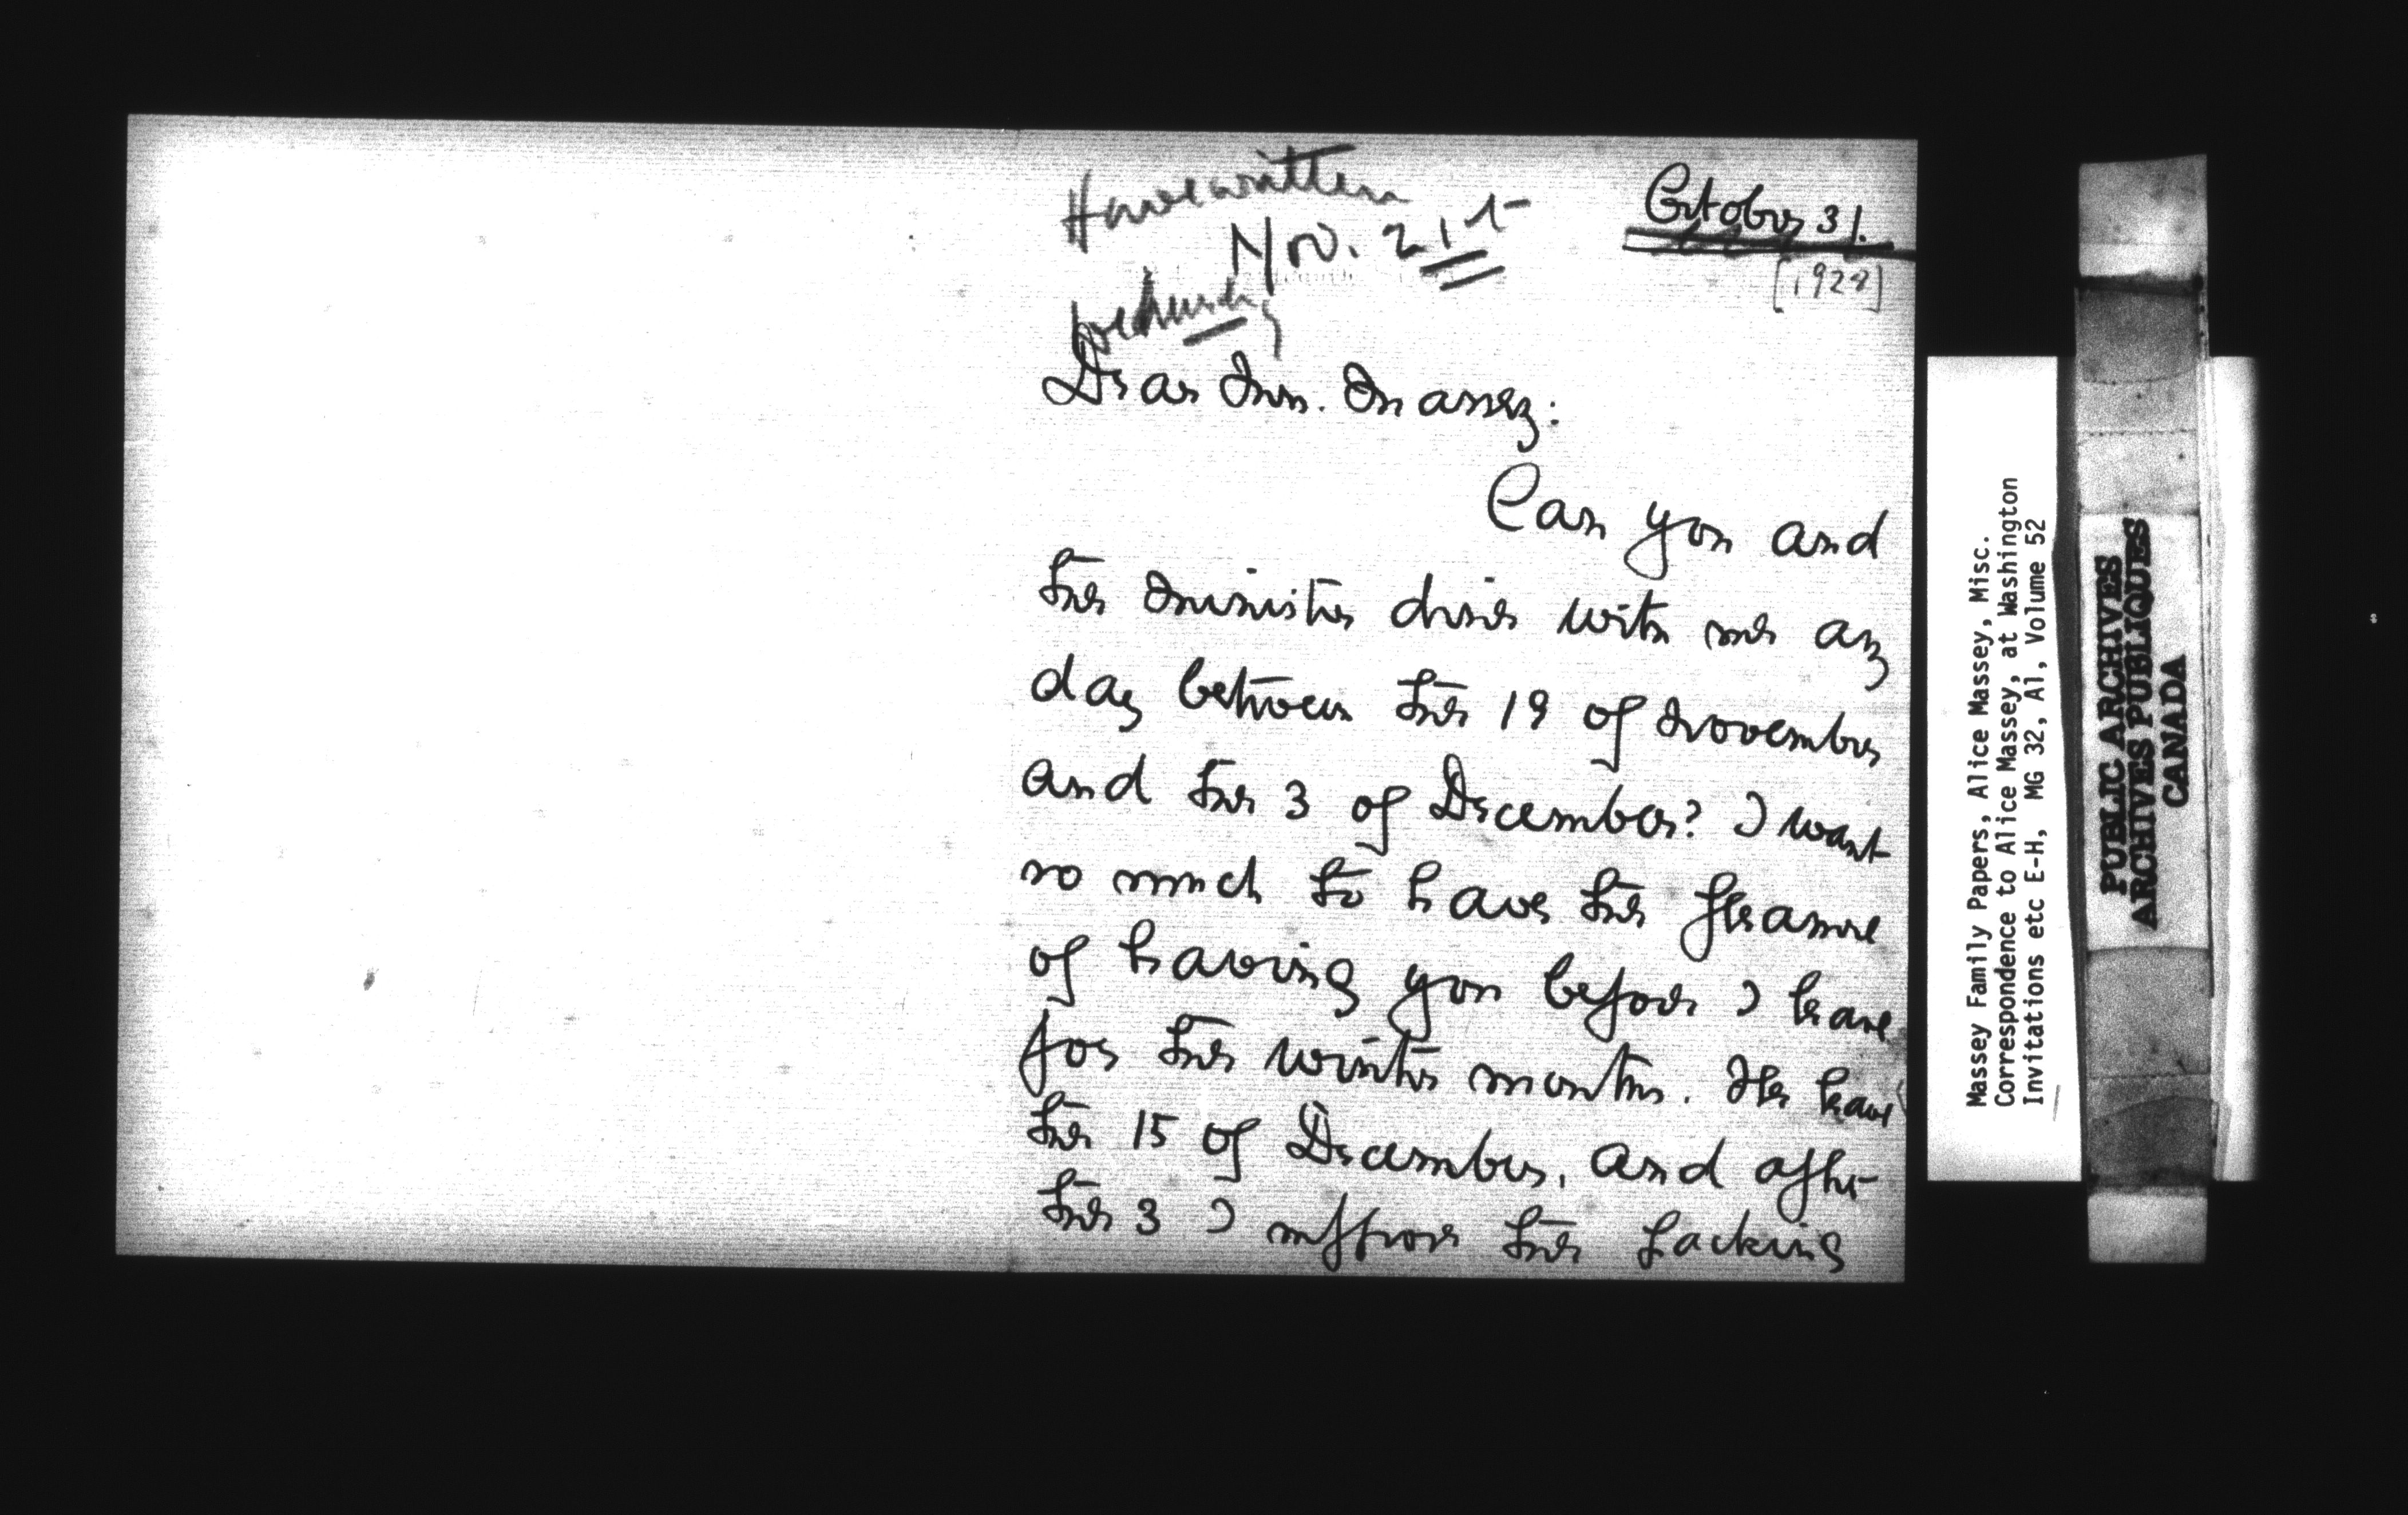 Have written
Nov. 21st
Wednesday
October 31.
[1928]
Dear Mrs. Massey:
Can you and
the Minister dine with me any
day between the 19 of November
and the 3 of December? I want
so much to have the pleasure
of having you before I leave
for the winter months. We leave
the 15 of December, and after
the 3 I suppose the packing
Massey Family Papers, Alice Massey, Misc.
Correspondence to Alice Massey, at Washington
Invitations etc E-H, MG 32, A1, Volume 52
PUBLIC ARCHIVES
ARCHIVES PUBLIQUES
CANADA